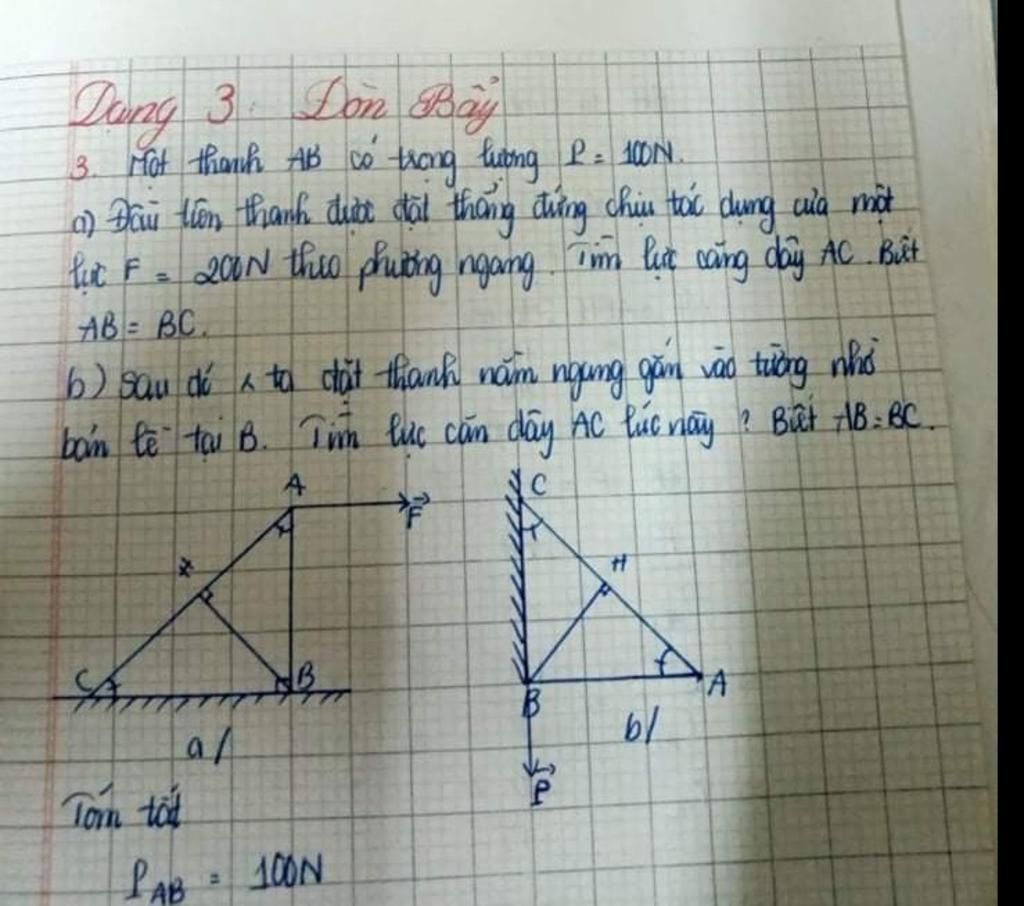 Dạng 3: Đòn Bẩy
3. Một thanh AB có trọng lượng P = 100N.
a) Đầu tiên thanh được đặt thẳng đứng chịu tác dụng của một
lực F = 200N theo phương ngang. Tìm lực căng dây AC. Biết
AB = BC.
b) sau đó ta đặt thanh nằm ngang gắn vào tường nhờ
bản lề tại B. Tìm lực căn dây AC lúc này? Biết AB = BC.
A F C
H
C B
B A
a/ b/
P
Tóm tắt
P_AB = 100N